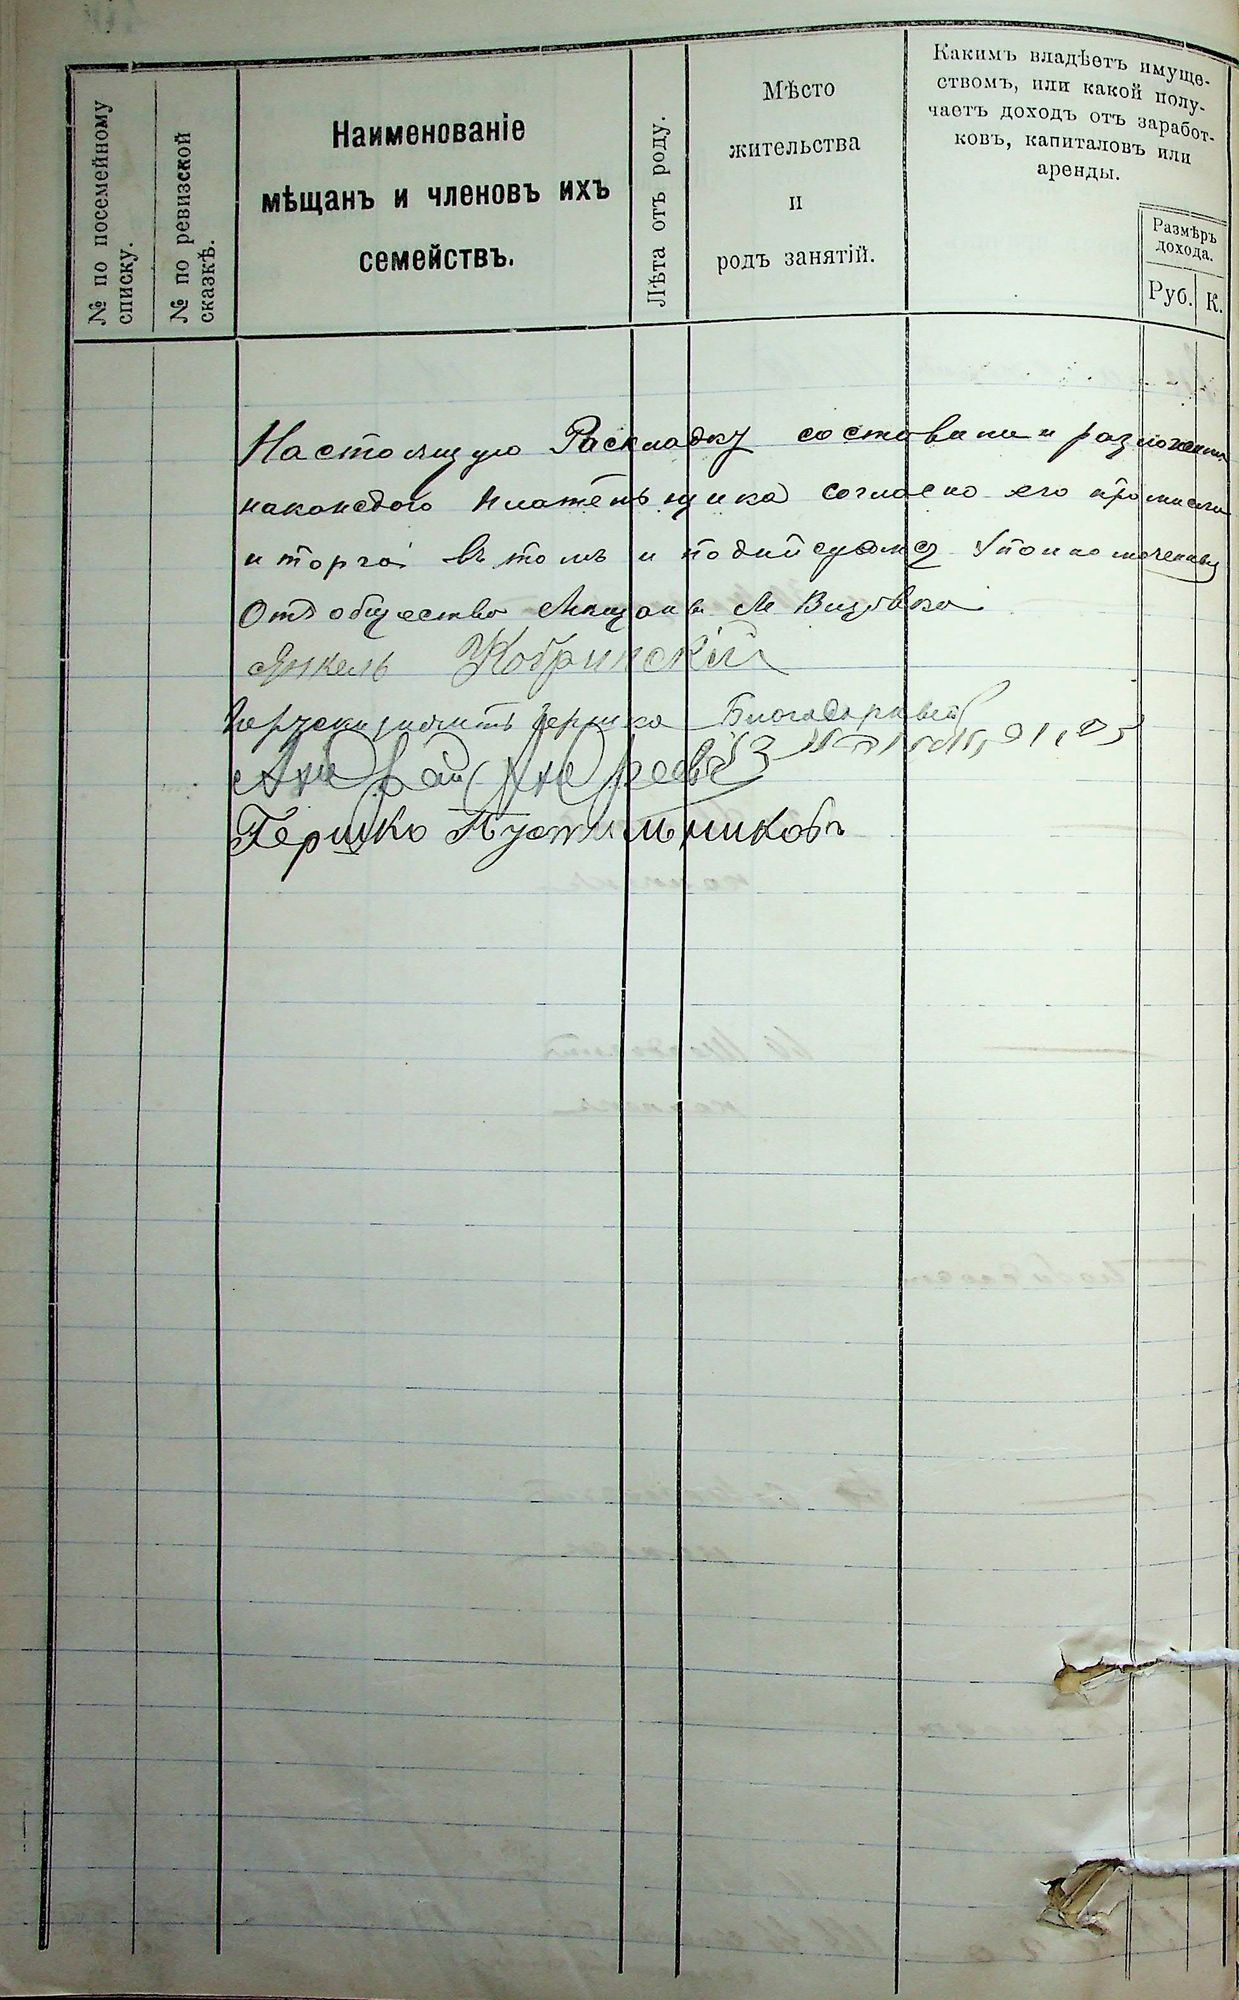 № по посемейному
списку.
№ по ревизской
сказкѣ.
Наименованіе
мѣщанъ и членовъ ихъ
семействъ.
Лѣта отъ роду.
Мѣсто
жительства
и
родъ занятій.
Какимъ владѣетъ имуще-
ствомъ, или какой полу-
чаетъ доходъ отъ заработ-
ковъ, капиталовъ или
аренды.
Размѣръ
дохода.
Руб.
К.
Настоящую Раскладку составили и разложили
накаждого плательщика согласно его промысли
и торга въ томъ и подписуемся Уполномоченныя
Отъ общества Мещанъ М
Янкель Кобринскій
Гершко
Андрей Андреевъ
Гершко Пустильниковъ